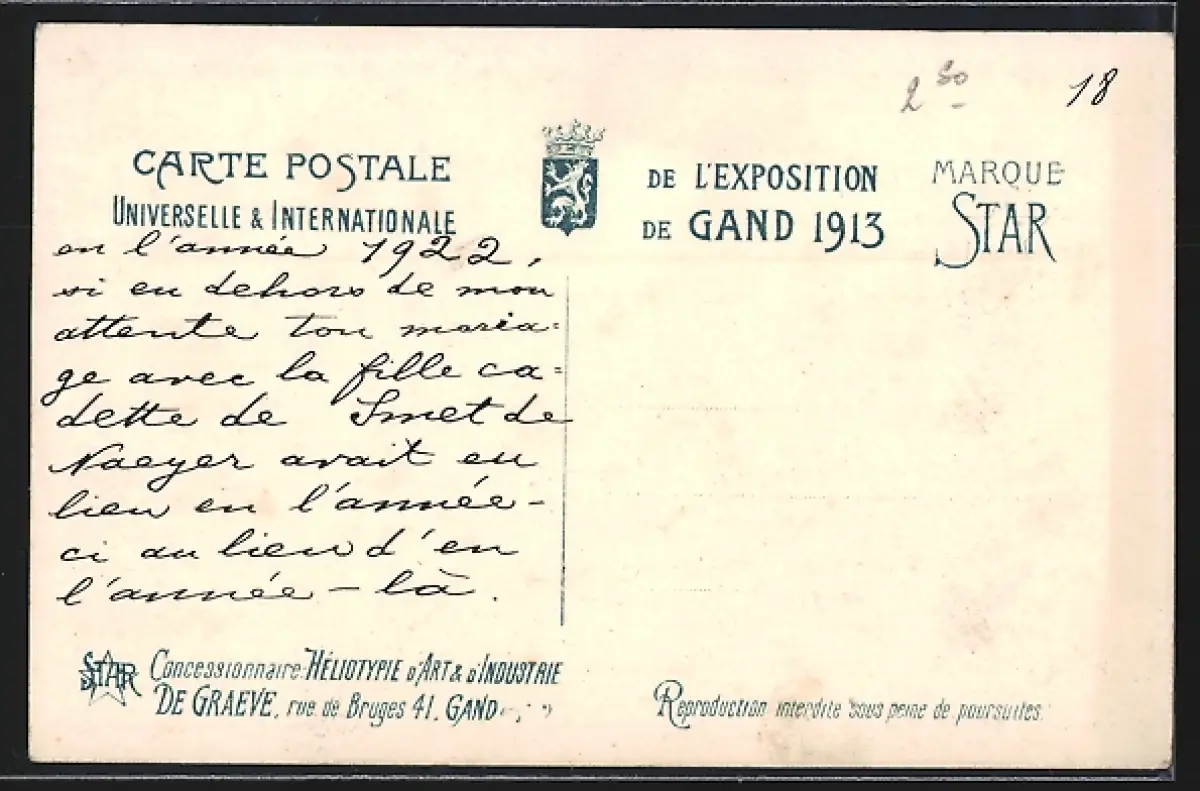 2 50
18
CARTE POSTALE
UNIVERSELLE & INTERNATIONALE
DE L'EXPOSITION
DE GAND 1913
MARQUE
STAR
en l'année 1922,
si en dehors de mon
attente ton maria=
ge avec la fille ca=
dette de Smet de
Naeyer avait eu
lieu en l'année-
ci au lieu d'en
l'année-là.
STAR
Concessionnaire: HÉLIOTYPIE D'ART & D'INDUSTRIE
DE GRAEVE, rue de Bruges 41, GAND
Reproduction interdite sous peine de poursuites.